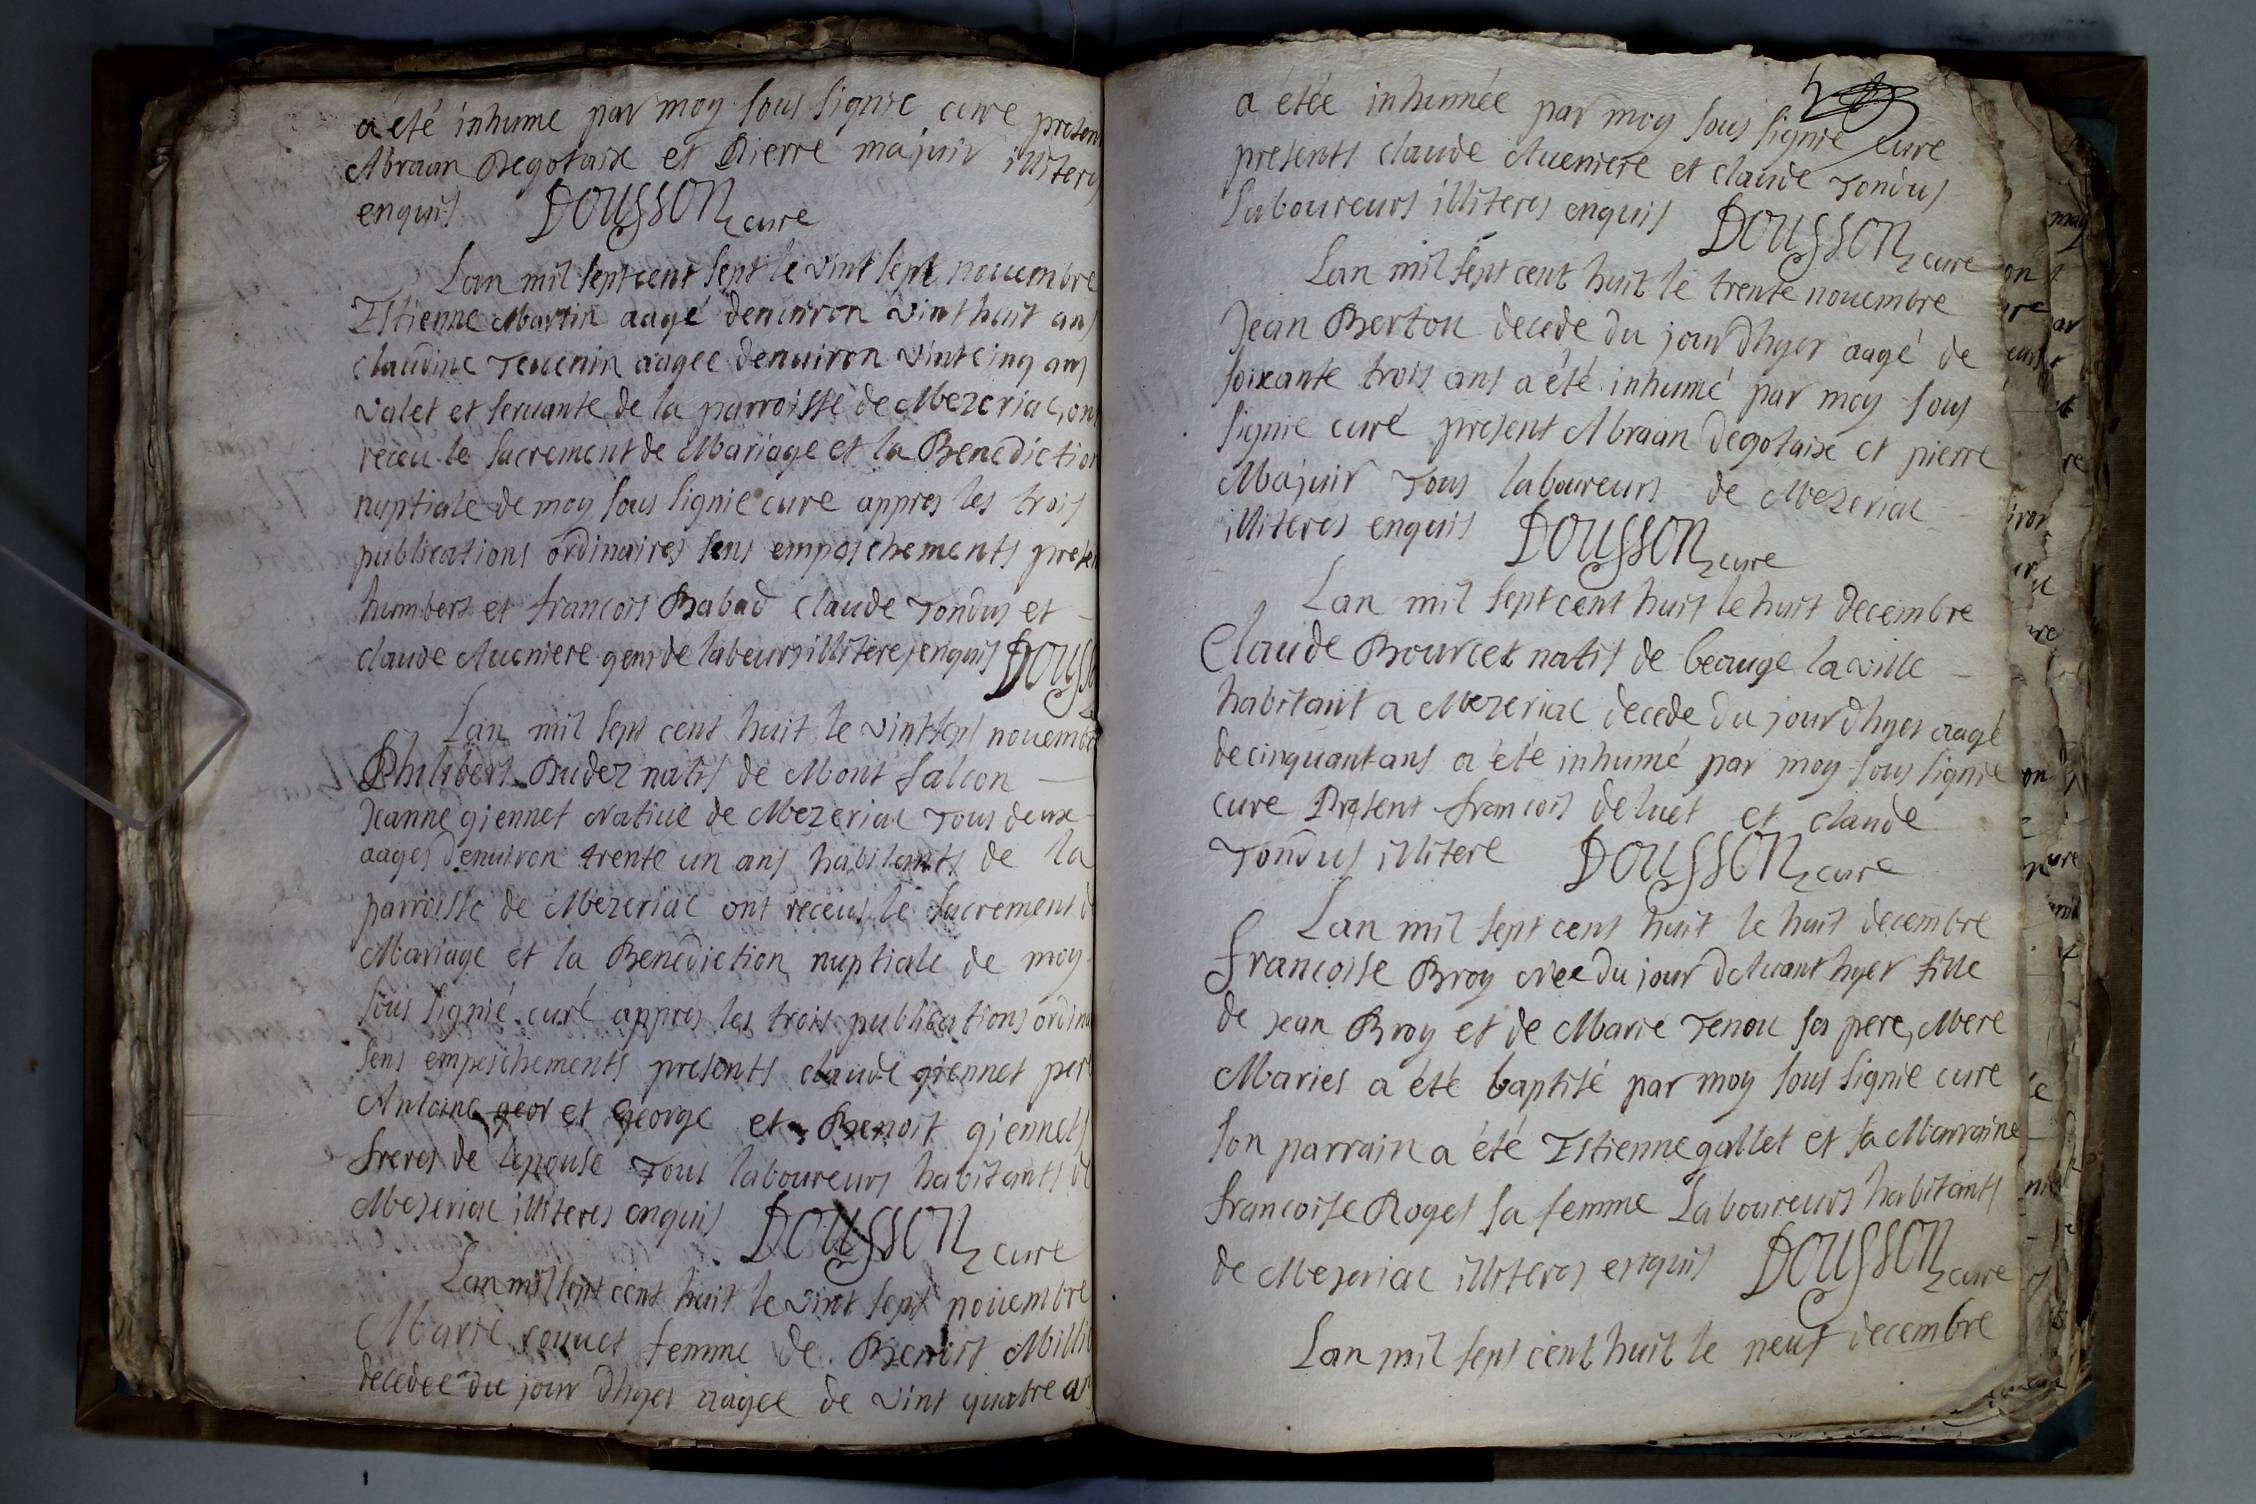 a été inhume par moy sous signie cure presen
Abraan Degotaix et Pierre majuir illiteres
enquis DOUSSON cure
Lan mil sept cent sept le vint sept nouembre
Estienne Martin aagé denuiron vint huit ans
claudine Teuenin aagee denuiron vint cinq ans
valet et seruante de la parroisse de Mezeriac, ont
receu le sacrement de Mariage et la Benediction
nuptiale de moy sous signie cure appres les trois
publications ordinaires sens empeschements presen
humbert et francois Babad claude Tondus et
claude Aueniere gens de labeurs illiteres enquis DOUSSO
Lan mil sept cent huit le vint sept nouembre
Philibert Budez natif de Mont falcon
Jeanne giennet Natiue de Mezeriac Tous deux
aages denuiron trente un ans habitants de la
parroisse de Mezeriac ont receus le sacrement d
Mariage et la Benediction nuptiale de moy
sous signié curé appres les trois publications ordina
sens empeschements presents claude giennet per
Antoine geor et george et Benoit giennets
freres de lepouse Tous laboureurs habitants de
Mezeriac illiteres enquis DOUSSON cure
Lan mil sept cent huit le vint sept nouembre
Marie rouuet femme de Benoist Milli
decedee du jour dhyer aagee de vint quatre an
a étée inhumée par moy sous signie cure
presents claude Aueniere et claude Tondus
Laboureurs illiteres enquis DOUSSON cure
Lan mil sept cent huit le trente nouembre
Jean Berton decede du jour dhyer aagé de
soixante trois ans a été inhumé par moy sous
signie curé present Abraan degotaix et pierre
Majuir Tous laboureurs de Mezeriac
illiteres enquis DOUSSON cure
Lan mil sept cent huit le huit decembre
Claude Bourcet natif de beauge la ville
habitant a Mezeriac decede du jour dhyer aagé
de cinquant ans a été inhumé par moy sous signie
cure Present francois deluet et claude
Tondus illitere DOUSSON cure
Lan mil sept cent huit le huit decembre
francoise Broy Nee du jour deuant hyer fille
de jean Broy et de Marie Tenou ses pere, Mere
Maries a été baptisé par moy sous signie cure
son parrain a été Estienne gallet et sa Marraine
francoise Roget sa femme Laboureurs habitants
de Mezeriac illiteres enquis DOUSSON cure
Lan mil sept cent huit le neuf decembre